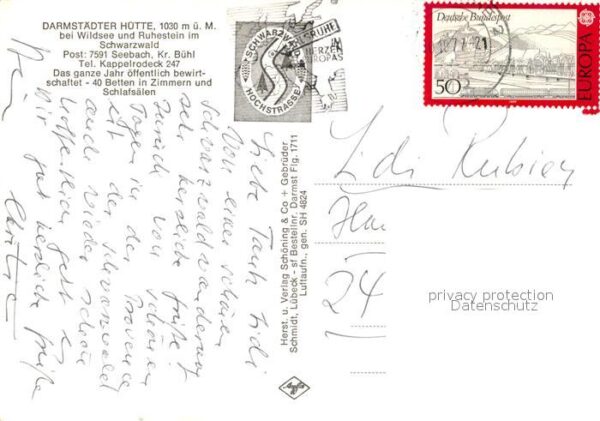 DARMSTÄDTER HÜTTE, 1030 m ü. M.
bei Wildsee und Ruhestein im
Schwarzwald
Post: 7591 Seebach, Kr. Bühl
Tel. Kappelrodeck 247
Das ganze Jahr öffentlich bewirt-
schaftet - 40 Betten in Zimmern und
Schlafsälen
SCHWARZWALD
HOCHSTRASSE
KARLSRUHE
HERZEN
EUROPAS
Deutsche Bundespost
50
EUROPA
CEPT
Liebe Tante Lidi
Von einer schönen
Schwarzwaldwanderung
sehr herzliche Grüße!
Zurück von schönen
Tagen in der Provence
ist der Schwarzwald
auch wieder schön
Hoffentlich geht es
Dir gut herzliche Grüße
Herst. u. Verlag Schöning & Co + Gebrüder
Schmidt, Lübeck - sf Bestellnr. Darmst Fig. 1711
Luftaufn., gen. SH 4824
Agfa
Lidi
24
privacy protection
Datenschutz